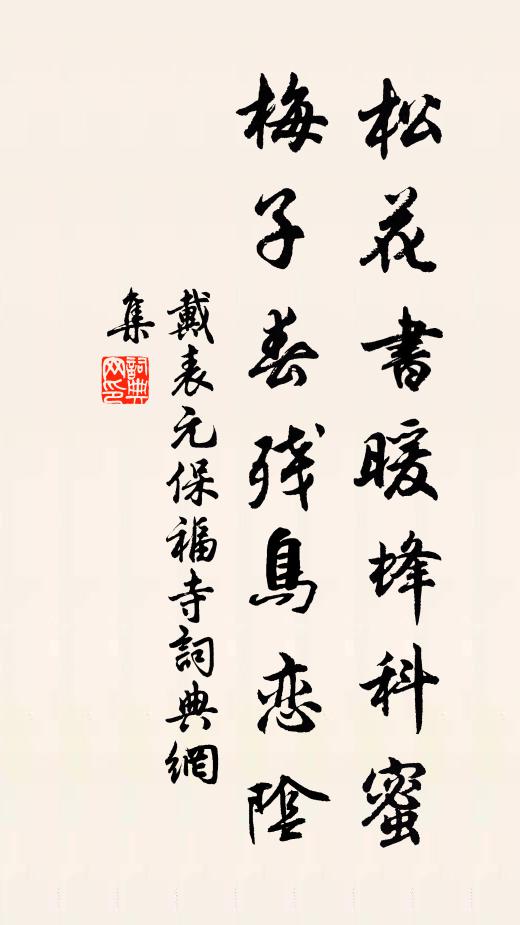 松花書暖蜂科蜜
梅子春残鳥恋陰
戴表元保福寺詞典網
集
詞典网印